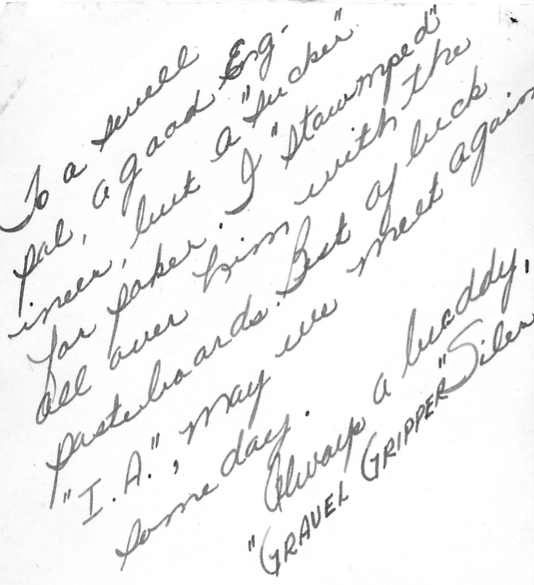 To a swell
pal, a good Eng-
ineer, but a "sucker"
for poker. I "stawmped"
all over him with the
pasteboards. Best of luck
"I.A.", May we meet again
some day.
Always a buddy,
"GRAVEL GRIPPER" Siler